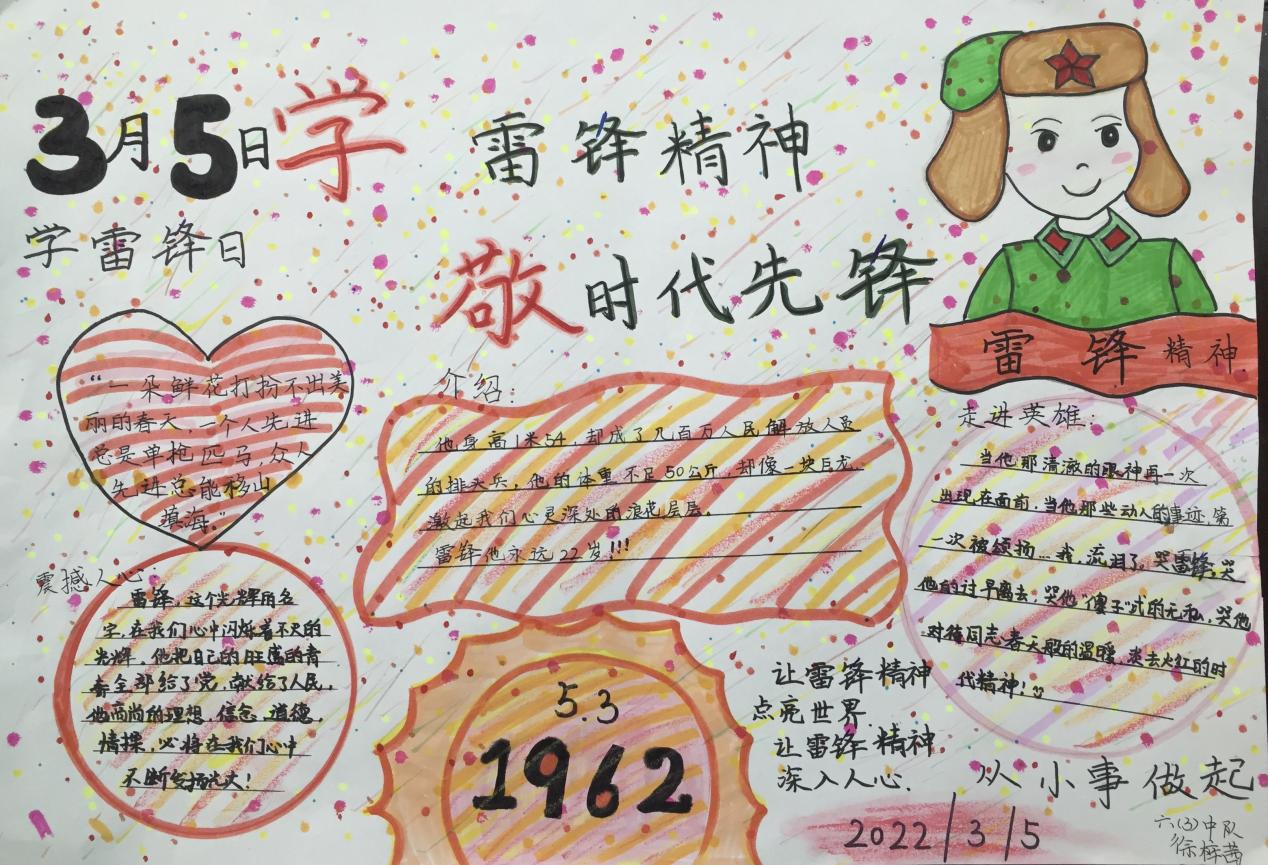 3月5日学 雷锋精神
学雷锋日
敬时代先锋
雷锋精神
“一朵鲜花打扮不出美
丽的春天,一个人先进
总是单枪匹马,众人
先进总能移山
填海。”
介绍:
他身高1米54,却成了几百万人民解放人员
的排头兵,他的体重不足50公斤,却像一块巨龙
激起我们心灵深处的浪花层层。
雷锋他永远22岁!!!
走进英雄:
当他那清澈的眼神再一次
出现在面前,当他那些动人的事迹,第
一次被颂扬...我,流泪了,哭雷锋,哭
他的过早离去,哭他“傻子”式的无私,哭他
对待同志春天般的温暖,哭去火红的时
代精神!
震撼人心:
雷锋,这个光辉的名
字,在我们心中闪烁着不灭的
光辉,他把自己的旺盛的青
春全部给了党,献给了人民,
他高尚的理想,信念,道德,
情操,必将在我们心中
不断发扬光大!
5.3
1962
让雷锋精神
点亮世界.
让雷锋精神,
深入人心.
从小事做起
2022/3/5
六(3)中队
徐梓茜